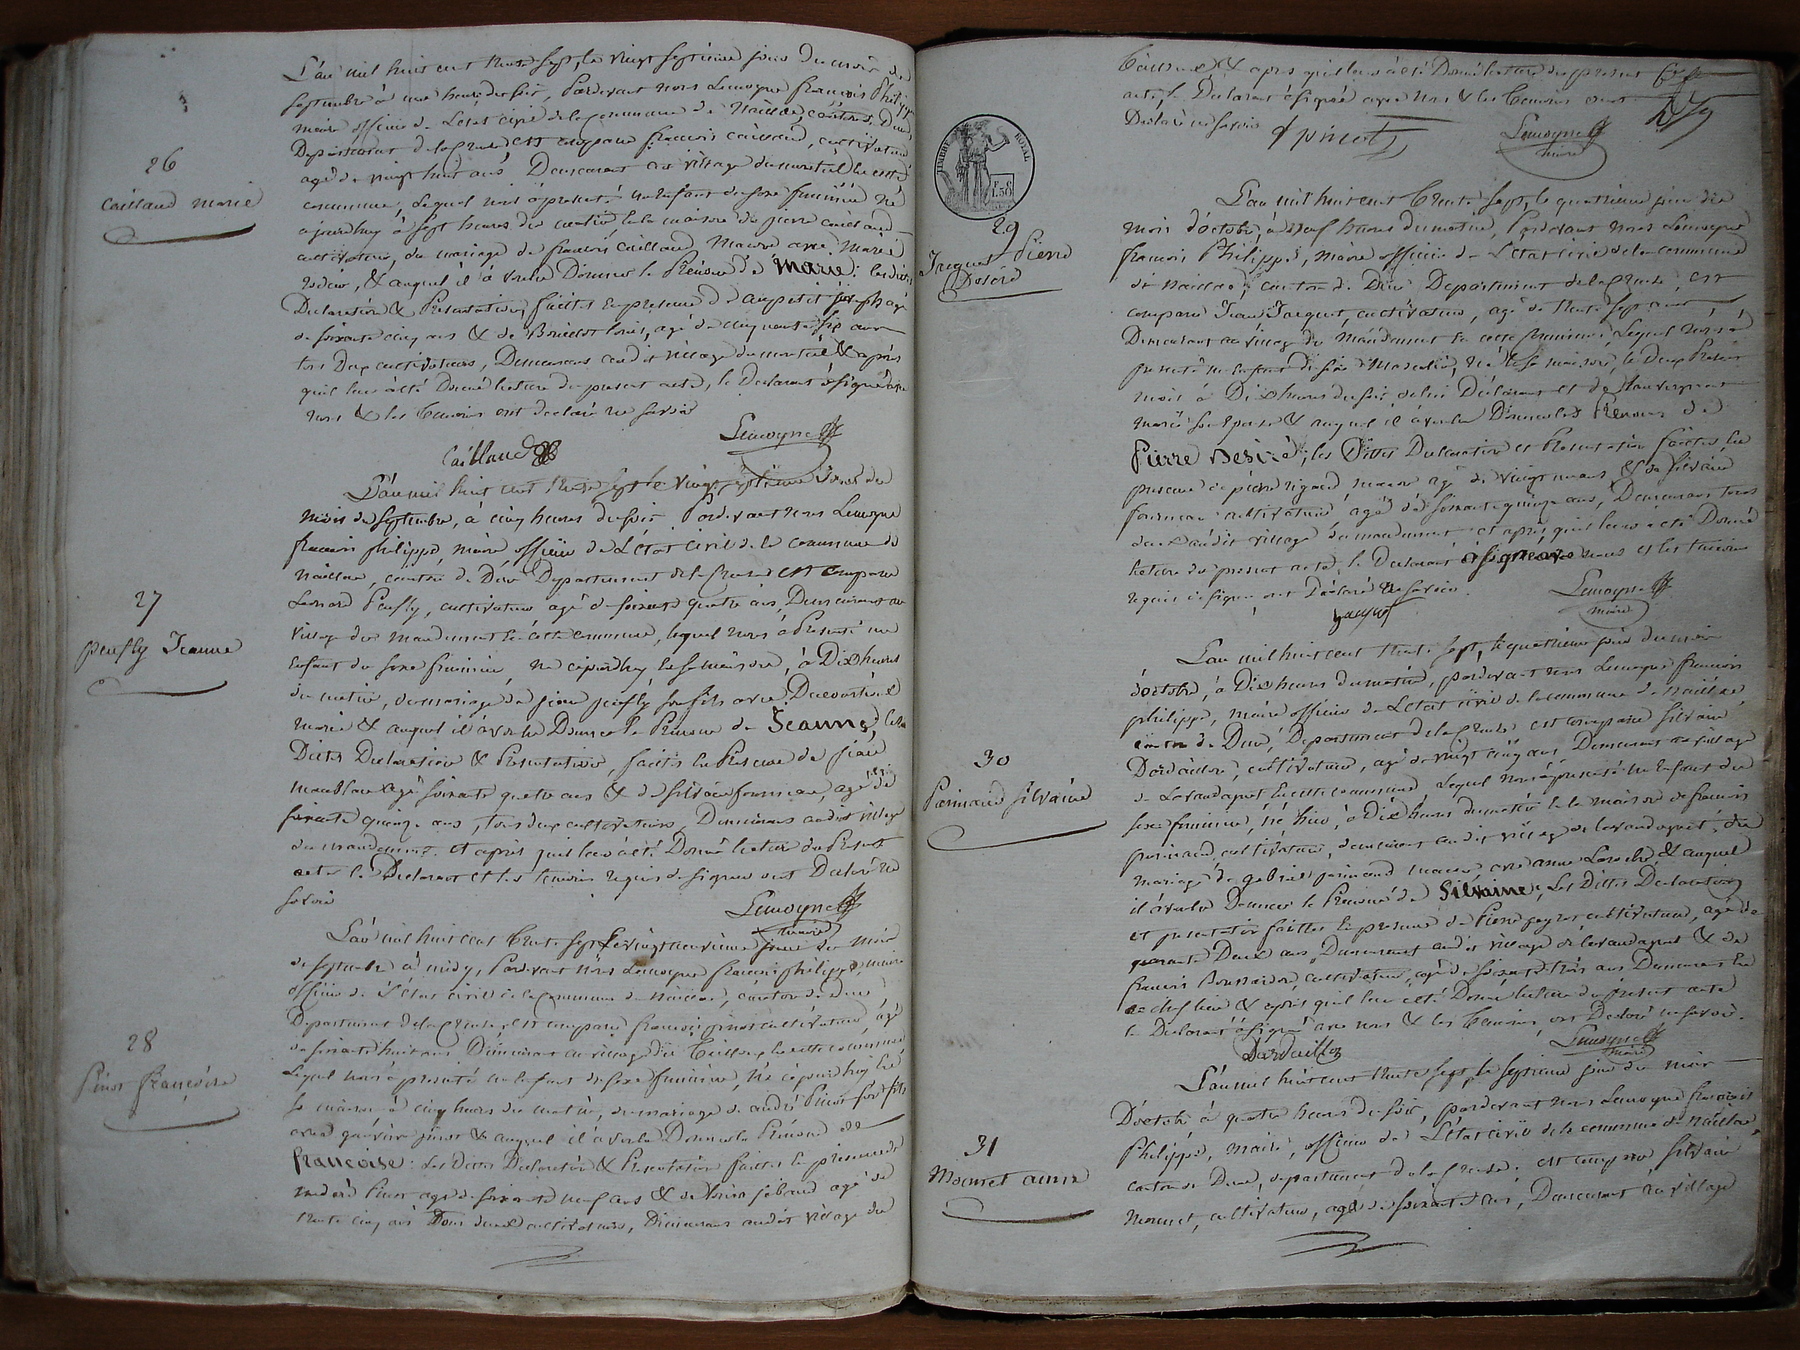 26
Caillaud marie
L'an mil huit cent trente sept, le vingt septième jour du mois de
septembre à une heure du soir, Pardevant nous Lemoyne françois Philippe
maire officier de L'etat civil de la commune de Naillac, canton de Dun
Département de la Creuse est comparu françois caillaud, cultivateur
agé de vingt huit ans Demeurant au village du monteil en cette
commune, Lequel nous à présenté un Enfant de sexe féminin né
aujourdhuy à sept heures du matin en la maison de pierre caillaud
cultivateur, du mariage de françois Caillaud, Maçon avec Marie
& auquel il à voulu Donner le Prénom de Marie; les dittes
Declaration & Présentation faittes en présence de joseph agé
de soixante cinq ans & de louis, agé de cinquante six ans
tous Deux cultivateurs, Demeurans au dit village du monteil & après
quil leur à été Donné lecture du present acte, le Declarant à signé avec
nous & les temoins ont declaré ne savoir
Caillaud Lemoyne
27
peufly Jeanne
L'an mil huit cent trente sept le vingt septième jour du
mois de septembre, à cinq heures du soir Pardevant nous Lemoyne
françois philippe maire officier de L'état civil de la commune de
Naillac, canton de Dun Département de la Creuse est comparu
Leonard Peufly, cultivateur agé de soixante quatre ans, Demeurant au
village du mandement en cette commune, lequel nous à Présenté un
Enfant du sexe féminin, né cejourdhuy en sa maison, à Dix heures
du matin, du mariage de jean peufly son fils avec
marie & auquel il à voulu Donner le Prénom de Jeanne, les
Dittes Declaration & Présentation, faittes en Présence de jean
agé soixante quatre ans & de silvain fourneau, agé de
soixante quinze ans, tous deux cultivateurs, Demeurans audit village
du mandement. et après quil leur à été Donné lecture du Présent
acte le Declarant et les temoins requis de signer ont Declaré ne
savoir
Lemoyne
maire
28
Pinot françoise
L'an mil huit cent trente sept le vingt neuvième jour du mois
de septembre à midy, Pardevant nous Lemoyne françois philippe, maire
officier de l'état civil de la commune de Naillac, canton de Dun
Département de la Creuse, est comparu françois pinot cultivateur, agé
de soixante huit ans, Demeurant au village du en cette commune
Lequel nous à présenté un Enfant de sexe féminin, né cejourdhuy en
sa maison à cinq heures du matin, du mariage de andré Pinot son fils
avec pinot & auquel il à voulu Donner le Prénom de
françoise: les Dittes Declaration & Présentation faittes en présence de
andré Pinot agé de soixante neuf ans & de agé de
trente cinq ans Tous deux cultivateurs, Demeurans audit village du
& après quil leur à été Donné lecture du présent
acte, le Declarant à signé avec nous & les temoins ont
Declaré ne savoir
f pinot Lemoyne
maire
TIMBRE ROYAL
29
Jacquet Pierre
Désiré
L'an mil huit cent trente sept, le quatrième jour du
mois d'octobre, à neuf heures du matin, Pardevant nous Lemoyne
françois Philippe, maire officier de L'état civil de la commune
de Naillac, canton de Dun Département de la Creuse, est
comparu Jean Jacquet, cultivateur, agé de trente sept ans
Demeurant au village du Mandement en cette commune, Lequel nous à
présenté un Enfant de sexe Masculin, né en sa maison, le Deux Présent
mois à Dix heures du soir de lui Déclarant et de
marie son épouse & auquel il à voulu Donner les Prénoms de
Pierre Désiré; les Dittes Declaration et Présentation faittes en
présence de pierre rigaud, maçon agé de vingt neuf ans, & de silvain
fourneau cultivateur agé de soixante quinze ans, Demeurans tous
deux audit village du mandement. et après quil leur à été Donné
lecture du présent acte, le Declarant à signé avec nous et les temoins
requis de signer ont Déclaré ne savoir.
jacquet Lemoyne
maire
30
Parinaud silvaine
L'an mil huit cent trente sept, le quatrième jour du mois
d'octobre, à Dix heures du matin, pardevant nous Lemoyne françois
philippe, maire officier de L'etat civil de la commune de Naillac
canton de Dun, Département de la Creuse est comparu silvain
Dardaillon, cultivateur, agé de vingt cinq ans Demeurant au village
de Lavaudagnot en cette commune Lequel nous à présenté un Enfant du
sexe féminin, né hier, à Dix heures du matin en la maison de françois
parinaud cultivateur, demeurant audit village de lavaudagnot, du
mariage de gabriel parinaud maçon, avec anne & auquel
il à voulu Donner le Prénom de Silvaine; Les Dittes Declaration
et présentation faittes en présence de Pierre cultivateur, agé de
quarante Deux ans Demeurant audit village de lavaudagnot & de
françois cultivateur, agé de soixante trois ans Demeurant en
ce chef lieu & après quil leur à été Donné lecture du présent acte
le Declarant à signé avec nous & les temoins, ont Declaré ne savoir.
Dardaillon Lemoyne
maire
31
Mouret anne
L'an mil huit cent trente sept le septième jour du mois
D'octobre à quatre heures du soir, pardevant nous Lemoyne françois
Philippe, maire, officier de L'état civil de la commune de Naillac,
canton de Dun, département de la Creuse: est comparu silvain
Mouret, cultivateur, agé de soixante ans, Demeurant au village